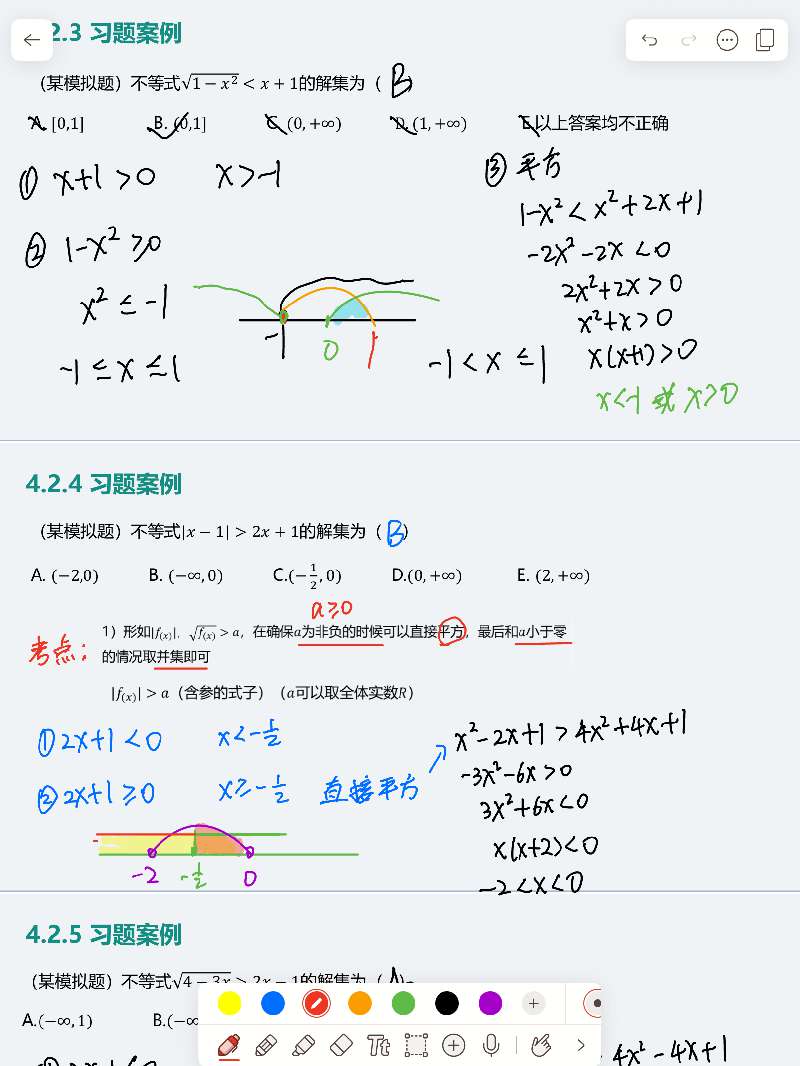 4.2.3 习题案例
（某模拟题）不等式√(1−x²) < x + 1的解集为（ B
A. [0,1] B. (0,1] C. (0,+∞) D. (1,+∞) E.以上答案均不正确
① x+1>0 x>-1
② 1-x²≥0
x² ≤ -1
-1 ≤ x ≤ 1
-1 0 1
-1 < x ≤ 1
③ 平方
1-x² < x²+2x+1
-2x²-2x<0
2x²+2x>0
x²+x>0
x(x+1)>0
x<-1 或 x>0
4.2.4 习题案例
（某模拟题）不等式|x − 1| > 2x + 1的解集为（ B ）
A. (−2,0) B. (−∞,0) C.(−1/2,0) D.(0,+∞) E. (2,+∞)
a≥0
考点：
1）形如|f(x)|、√f(x) > a，在确保a为非负的时候可以直接平方，最后和a小于零
的情况取并集即可
|f(x)| > a（含参的式子）（a可以取全体实数R）
① 2x+1<0 x<-1/2
② 2x+1≥0 x≥-1/2 直接平方
x²-2x+1 > 4x²+4x+1
-3x²-6x>0
3x²+6x<0
x(x+2)<0
-2<x<0
-2 -1/2 0
4.2.5 习题案例
（某模拟题）不等式√(4−3x) > 2x − 1的解集为（ A
A.(−∞,1) B.(−∞
4x²-4x+1
Tt